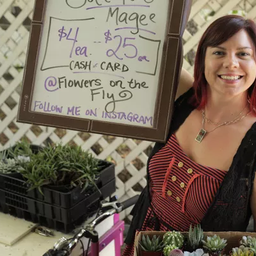 Magee
$4 ea. $25 ea.
CASH or CARD
@Flowers on the
Fly
FOLLOW ME ON INSTAGRAM